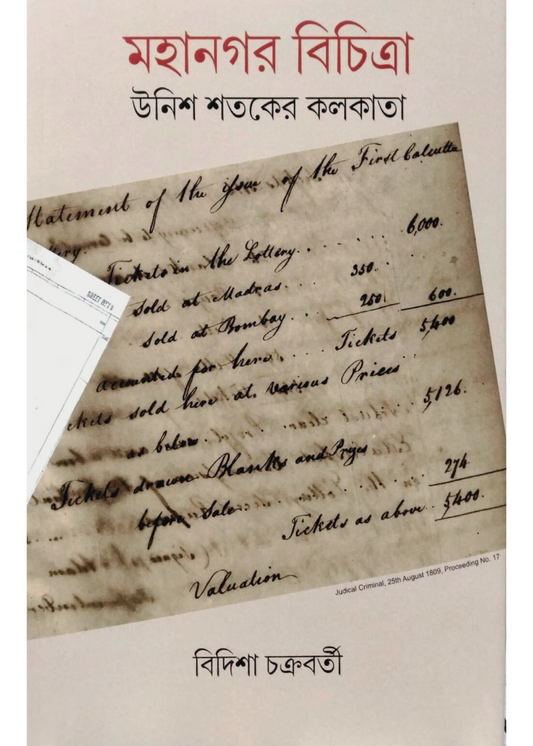 মহানগর বিচিত্রা
উনিশ শতকের কলকাতা
Statement of the issue of the First Calcutta
Tickets in the Lottery. . . . . . 6,000.
Sold at Madras. . . 350.
Sold at Bombay. . . 250. 600.
accounted for here. . . . Tickets 5,400
Tickets sold here at various Prices
as below. . . . 5,126.
Tickets drawn Blanks and Prizes
before Sale . . . . 274.
Tickets as above. . 5,400.
Valuation
Judical Criminal, 25th August 1809, Proceeding No. 17
বিদিশা চক্রবর্তী